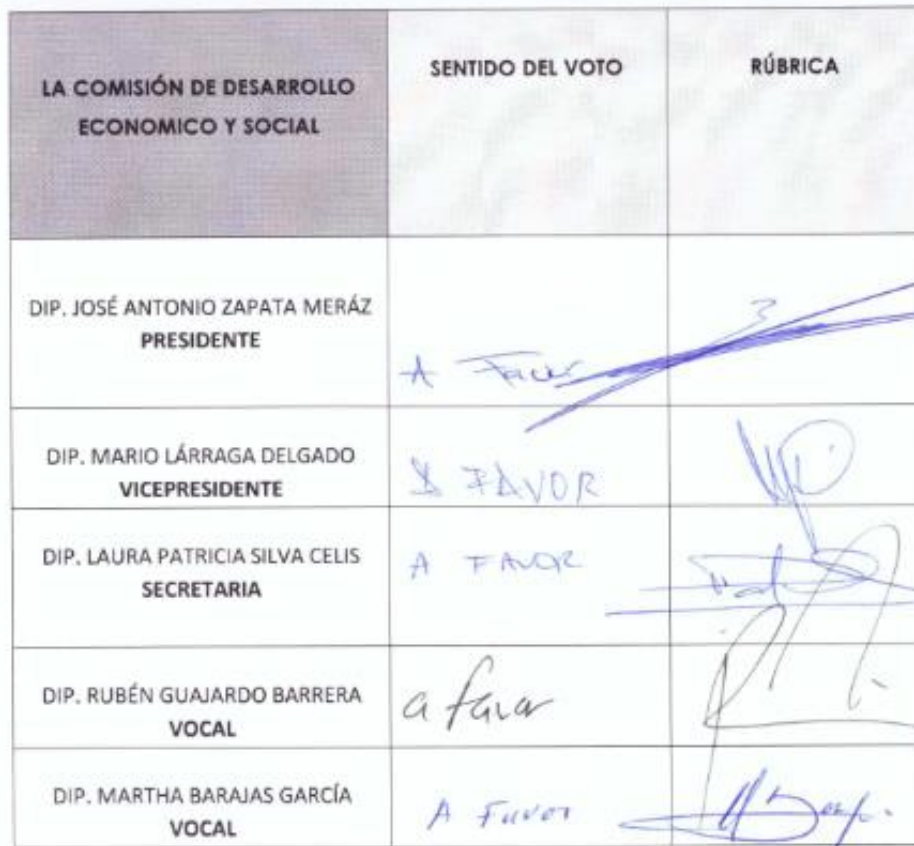 LA COMISIÓN DE DESARROLLO
ECONOMICO Y SOCIAL
SENTIDO DEL VOTO
RÚBRICA
DIP. JOSÉ ANTONIO ZAPATA MERÁZ
PRESIDENTE
A Favor
DIP. MARIO LÁRRAGA DELGADO
VICEPRESIDENTE
A FAVOR
DIP. LAURA PATRICIA SILVA CELIS
SECRETARIA
A FAVOR
DIP. RUBÉN GUAJARDO BARRERA
VOCAL
a favor
DIP. MARTHA BARAJAS GARCÍA
VOCAL
A Favor